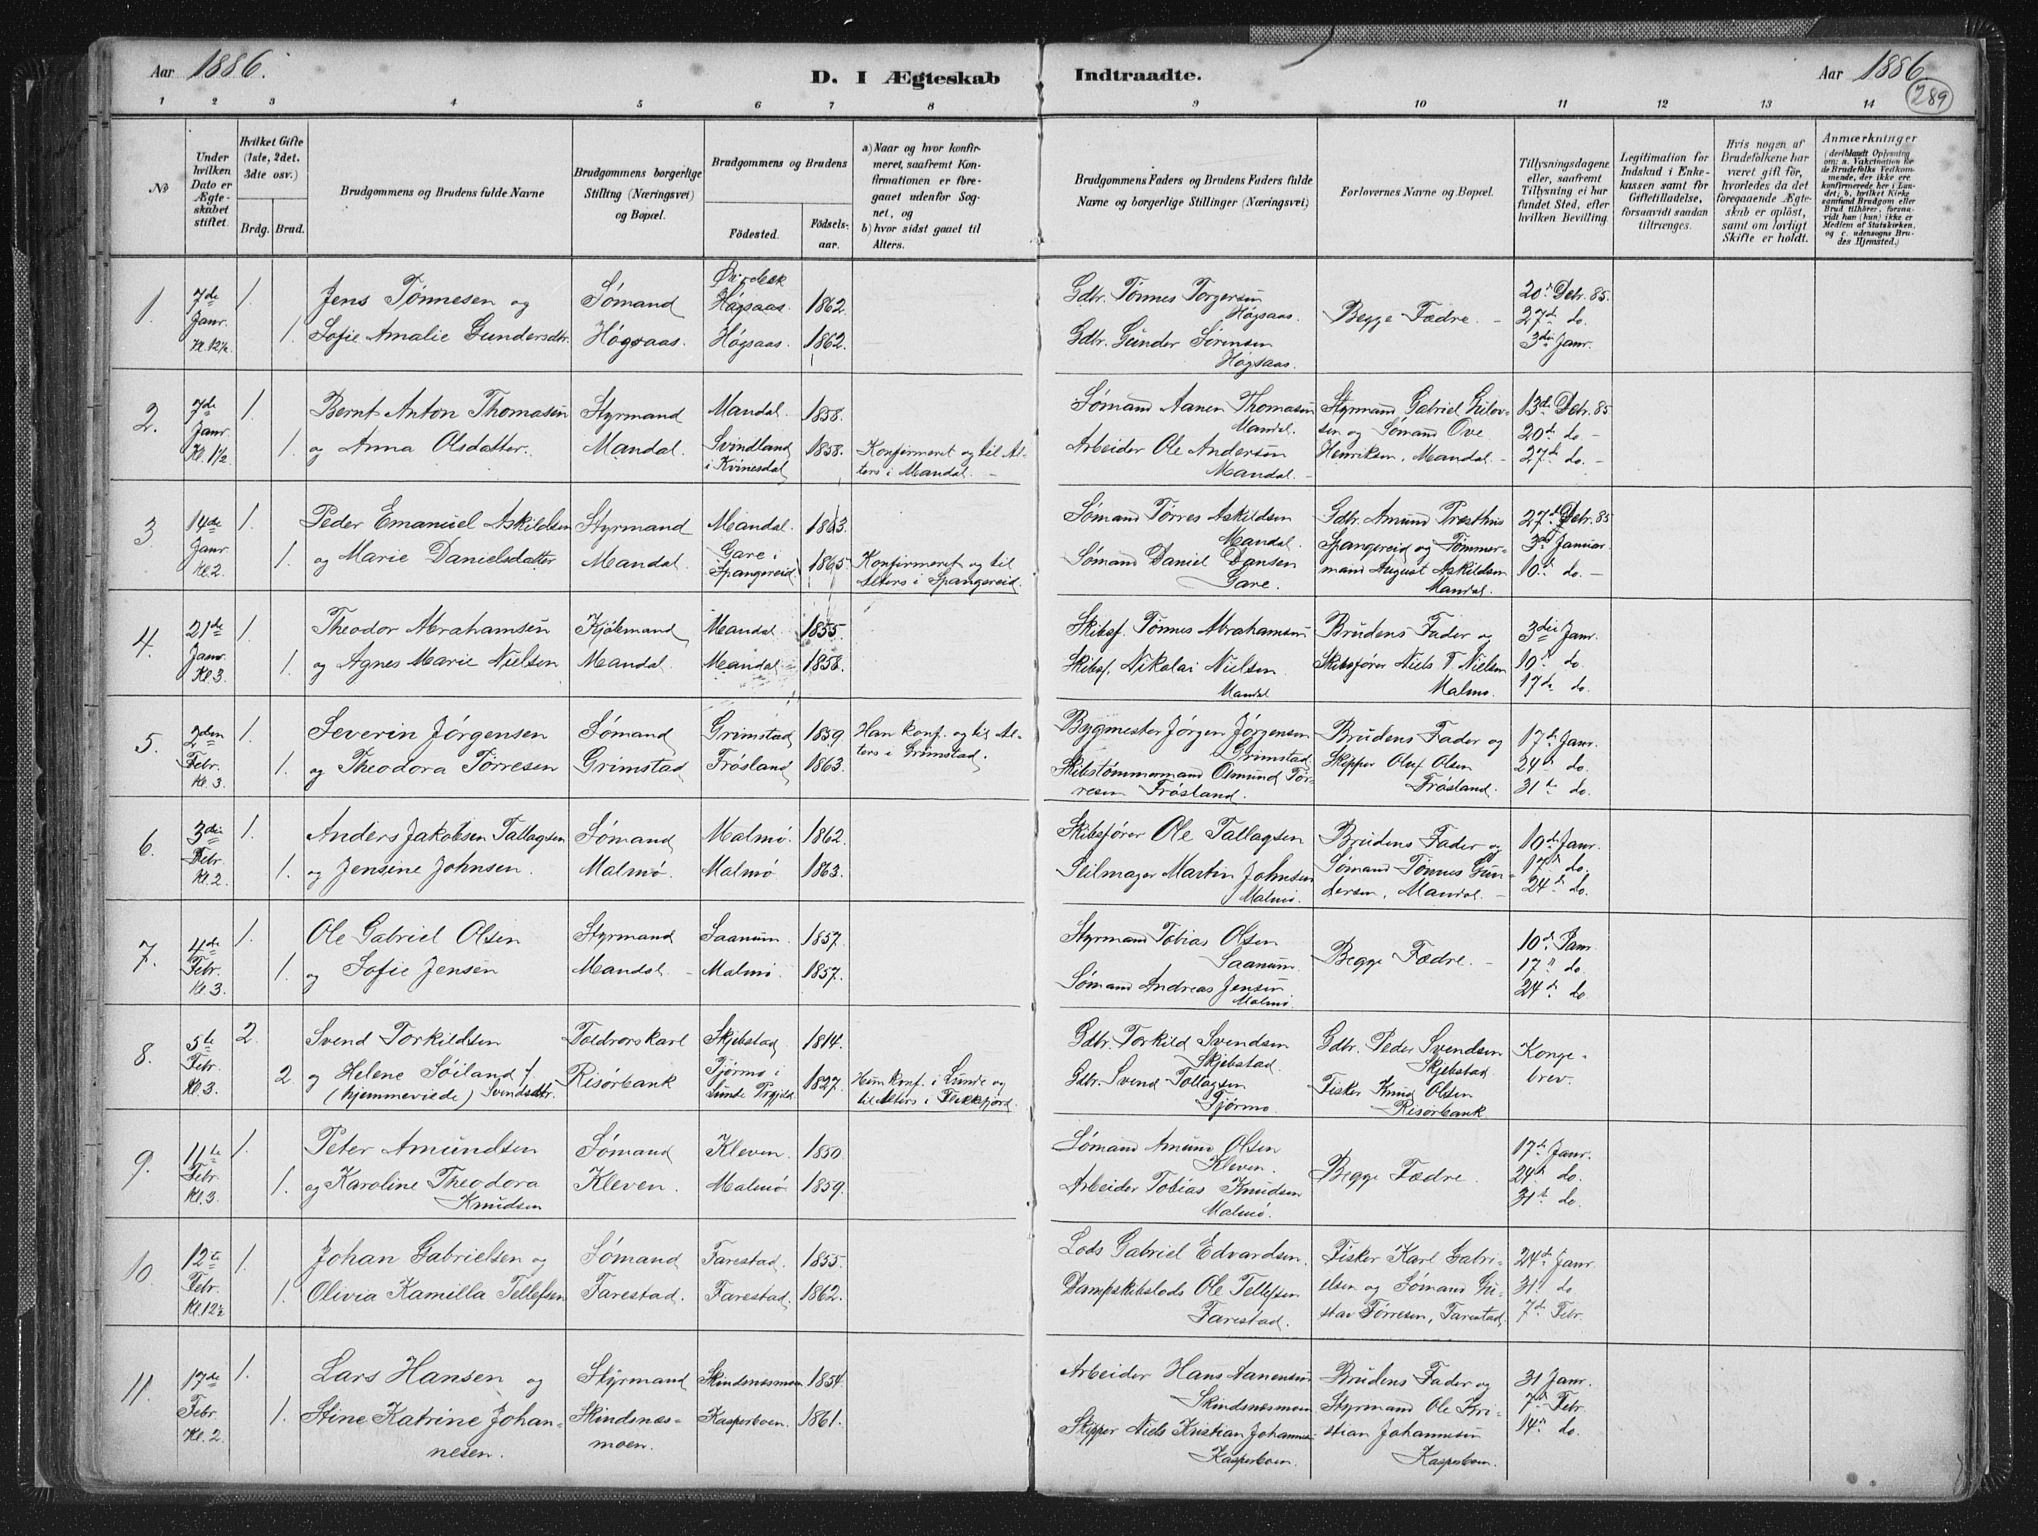 Aar 1886.
D. I Ægteskab Indtraadte.
Aar 1886.
289
1 2 3 4 5 6 7 8 9 10 11 12 13 14
No
Under hvilken Dato er Ægteskabet stiftet.
Hvilket Gifte (1ste, 2det. 3die osv.)
Brdg. Brud.
Brudgommens og Brudens fulde Navne
Brudgommens borgerlige Stilling (Næringsvei) og Bopæl.
Brudgommens og Brudens
Fødested. Fødsels-aar.
a) Naar og hvor konfirmeret, saafremt Konfirmationen er foregaaet udenfor Sognet, og
b) hvor sidst gaaet til Alters.
Brudgommens Faders og Brudens Faders fulde Navne og borgerlige Stillinger (Næringsvei)
Forlovernes Navne og Bopæl.
Tillysningsdagene eller, saafremt Tillysning ei har fundet Sted, efter hvilken Bevilling.
Legitimation for Indskud i Enkekassen samt for Giftetilladelse, forsaavidt saadan tiltrænges.
Hvis nogen af Brudefolkene har været gift før, hvorledes da det foregaaende Ægteskab er opløst, samt om lovligt Skifte er holdt.
Anmærkninger
1. 7de Janr. Kl. 12½ 1. 1.
Jens Tønnesen og
Sofie Amalie Gundersdtr.
Sømand
Høgsaas.
Høgsaas. 1862.
Høgsaas. 1862.
Gdbr. Tønnes Torgersen
Høgsaas.
Gdbr. Gunder Sørensen
Høgsaas.
Begge Fædre. –
20de Debr. 85.
27de do.
3die Janr.
2. 7de Janr. Kl. 1½ 1. 1.
Bernt Anton Thomasen
og Anna Olsdatter.
Styrmand
Mandal.
Mandal. 1858.
Svindland i Kvinesdal 1858.
Konfirmeret og til Alters i Mandal. –
Sømand Aanen Thomasen
Mandal.
Arbeider Ole Andersen
Mandal.
Styrmand Gabriel Gulovsen og Sømand Ove
Henriksen, Mandal. –
13de Debr. 85
20de do. –
27de do. –
3. 14de Janr. Kl. 2. 1. 1.
Peder Emanuel Askildsen
og Marie Danielsdatter
Styrmand
Mandal.
Mandal. 1863.
Gare i Spangereid. 1865.
Konfirmeret og til Alters i Spangereid.
Sømand Tørres Askildsen
Mandal.
Sømand Daniel Dansen
Gare.
Gdbr. Amund Præsthus
Spangereid og Tømmermand August Askildsen
Mandal.
27de Debr. 85
3die Januar
10de do. –
4. 21de Janr. Kl. 3. 1. 1.
Theodor Abrahamsen
og Agnes Marie Nielsen
Kjøbmand
Mandal.
Mandal. 1855.
Mandal. 1858.
Skibsf. Tønnes Abrahamsen
Skibsf. Nikolai Nielsen
Mandal
Brudens Fader og
Skibsfører Niels T. Nielsen
Malmø.
3die Janr.
10de do.
17de do.
5. 2den Febr. Kl. 3. 1. 1.
Severin Jørgensen
og Theodora Tørresen
Sømand
Grimstad
Grimstad 1859.
Frøsland 1863.
Han konf. og til Alters i Grimstad.
Bygmester Jørgen Jørgensen
Grimstad
Skibstømmermand Osmund Tørresen Frøsland.
Brudens Fader og
Skipper Oluf Olsen
Frøsland.
17de Janr.
24de do.
31te do.
6. 3die Febr. Kl. 2. 1. 1.
Anders Jakobsen Tallagsen
og Jensine Johnsen.
Sømand
Malmø.
Malmø. 1862.
Malmø 1863.
Skibsfører Ole Tallagsen
Seilmager Martin Johnsen
Malmø.
Brudens Fader og
Sømand Tønnes Gundersen, Mandal. –
10de Janr.
17de do.
24de do.
7. 4de Febr. Kl. 3. 1. 1.
Ole Gabriel Olsen
og Sofie Jensen
Styrmand
Mandal. –
Saanum. 1857.
Malmø. 1857.
Styrmand Tobias Olsen
Saanum.
Sømand Andreas Jensen
Malmø.
Begge Fædre. –
10de Janr
17" do.
24de do.
8. 5te Febr. Kl. 3. 2. 2.
Svend Torkildsen
og Helene Søiland f.
(hjemmeviede) Svendsdtr.
Risørbank
Skjebstad 1814.
Fjørmo i Lunde Prgjeld 1827.
Hun konf. i Lunde og til Alters i Flekkefjord.
Gdbr. Torkild Svendsen
Skjebstad.
Gdbr. Svend Tollagsen
Fjørmo.
Gdbr. Peder Svendsen
Skjebstad.
Fisker Knud Olsen
Risørbank.
Kongebrev.
9. 11te Febr. Kl. 3. 1. 1.
Peter Amundsen
og Karoline Theodora
Knudsen
Sømand
Kleven.
Kleven. 1850.
Malmø. 1859.
Sømand Amund Olsen
Kleven.
Arbeider Tobias Knudsen
Malmø.
Begge Fædre.
17de Janr.
24de do.
31te do.
10. 12te Febr. Kl. 12½ 1. 1.
Johan Gabrielsen og
Olivia Kamilla Tellefsen
Sømand
Farestad.
Farestad. 1855.
Farestad. 1862.
Lods Gabriel Edvardsen.
Dampskibslods Ole Tellefsen
Farestad.
Fisker Karl Gabrielsen og Sømand Gustav Tørresen, Farestad.
24de Janr.
31t do
7de Febr.
11. 17de Febr. Kl. 2 1. 1.
Lars Hansen og
Stine Katrine Johannesen.
Styrmand
Skindsnæsmoen.
Skindsnæsmoen 1854.
Kasperboen. 1861.
Arbeider Hans Aanensen
Skindsnæsmoen
Skipper Niels Kristian Johannesen
Kasperboen.
Brudens Fader og
Styrmand Ole Kristian Johannesen
Kasperboen.
31 Janr.
7de Febr.
14de do.